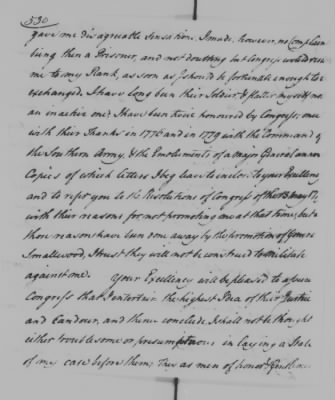 530
gave me disagreeable Sensation. I made, however, no Complaint
being then a Prisoner, and not doubting but Congress would restore
me to my Rank, as soon as I should be fortunate enough to be
exchanged. I have long been their Soldier, & flatter myself, not
an inactive one; I have been twice honoured by Congress; once
with their Thanks in 1776 and in 1779 with the Command of
the Southern Army, & the Emoluments of a Major General
Copies of which letters I beg leave to inclose to your Excellency
and to refer you to the Resolutions of Congress of the
with their reasons for not promoting me at that time, but as
those reasons have been done away by the promotion of General
Smallwood, I trust they will not be construed to militate
against me. Your Excellency will be pleased to assure
Congress that I entertain the highest Idea of their Justice
and Candour, and thence conclude I shall not be thought
either troublesome or presumptuous in laying a State
of my case before them; They as men of honor &